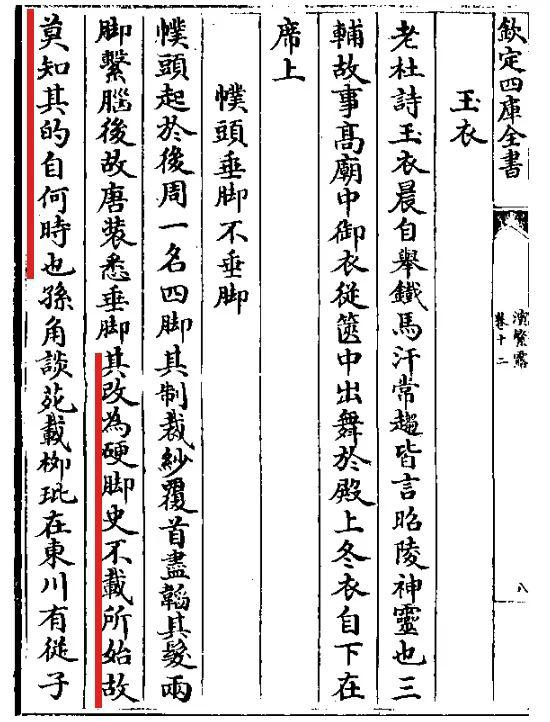 欽定四庫全書
演繁露
卷十二
八
玉衣
老杜詩玉衣晨自舉鐵馬汗常趨皆言昭陵神靈也三
輔故事髙廟中御衣從篋中出舞於殿上冬衣自下在
席上
幞頭垂脚不垂脚
幞頭起於後周一名四脚其制裁紗覆首盡韜其髮兩
脚繫腦後故唐裝悉垂脚其改為硬脚史不載所始故
莫知其的自何時也孫角談苑載栁玭在東川有從子